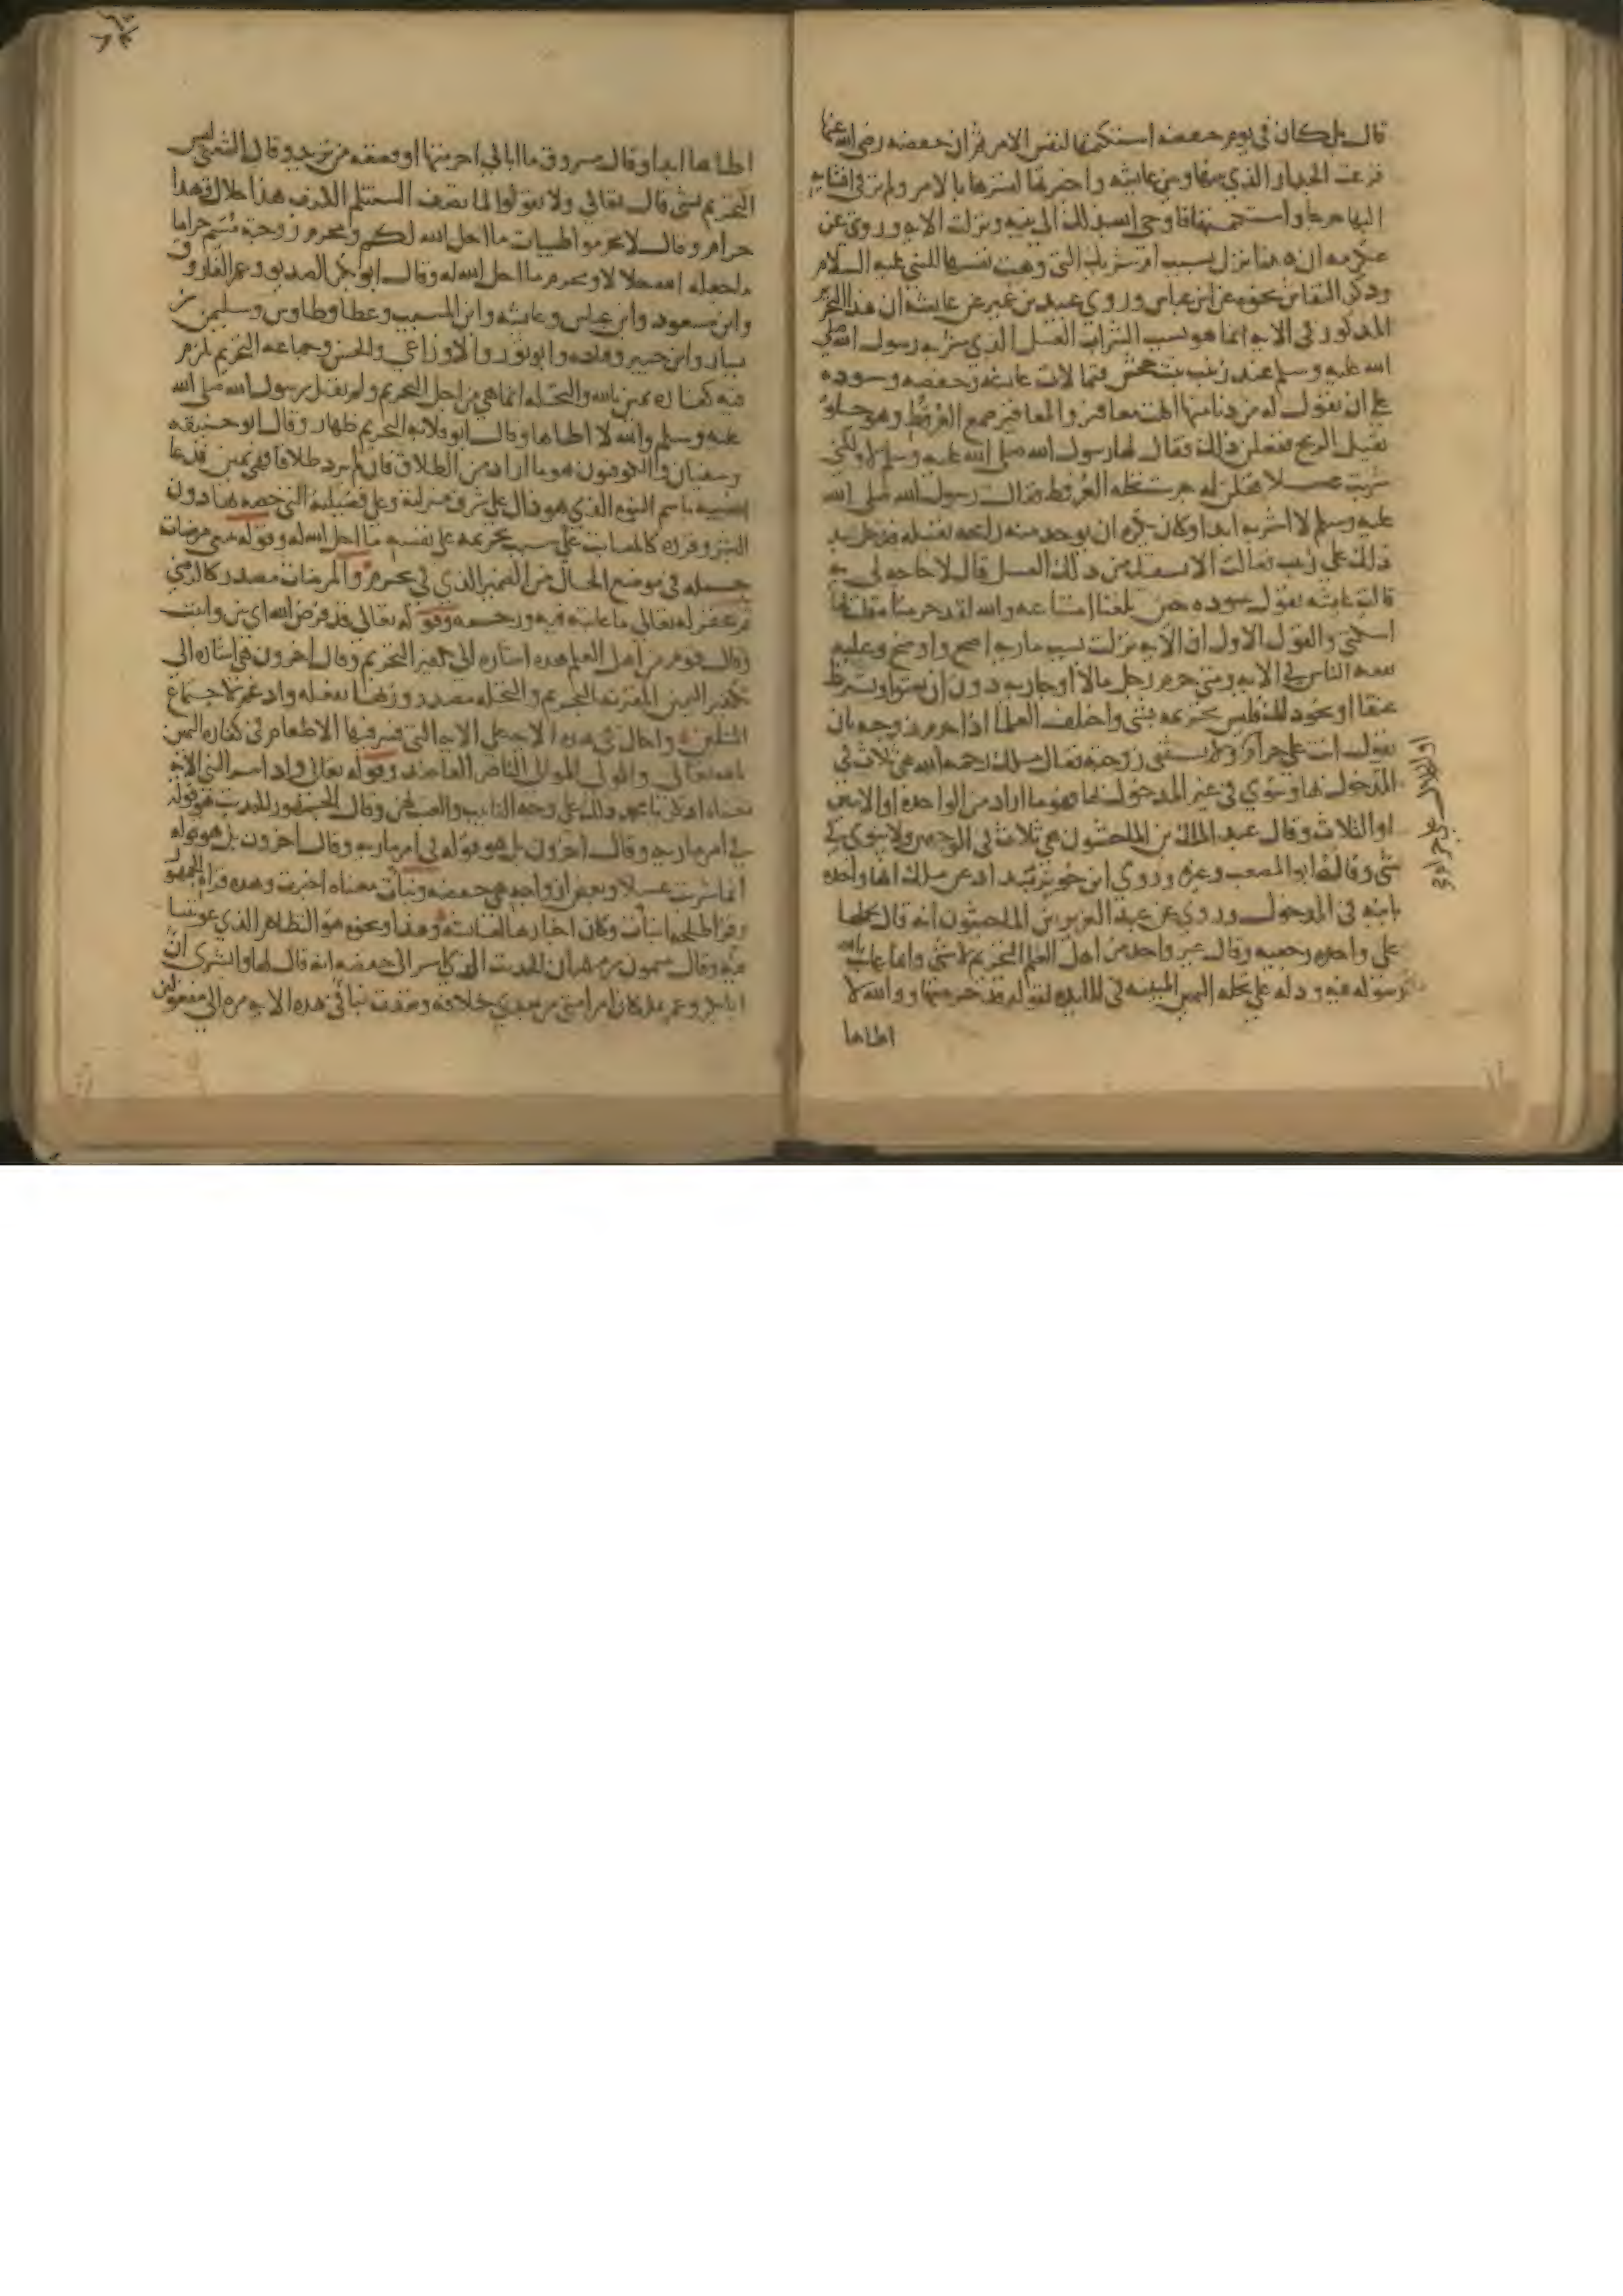 قال بل كان في يوم حفصة استكتمها لنفس الامر ثم ان حفصه رضي الله عنها
قرعت الجدار الذي بينها وبين عايشه واخبرتها لتسرها بالامر ولم تر في افشايه
اليها حرجا واستكتمتها فاوحى الله بذلك الى نبيه ونزلت الايه وروي عن
عكرمه ان هذا نزل بسبب ام شريك التي وهبت نفسها للنبي عليه السلام
وذكر النقاش نحوه عن ابن عباس وروي عبيد بن عمير عن عايشه ان هذا التحريم
المذكور في الايه انما هو بسبب الشراب العسل الذي شربه رسول الله صلى
الله عليه وسلم عند زينب بنت جحش فتمالات عايشه وحفصه وسوده
على ان تقول له من دنا منها اكلت مغافير والمغافير صمغ العرفط وهو حلو
ثقيل الريح ففعلن ذلك فقال لها رسول الله صلى الله عليه وسلم لا ولكني
شربت عسلا فقلن له جرست نحله العرفط فقال رسول الله صلى الله
عليه وسلم لا اشربه ابدا وكان يكره ان يوجد منه رايحه ثقيله فدخل بعد
ذلك على زينب فقالت الا نسقيك من ذلك العسل قال لا حاجه لي به
قالت عايشه تقول سوده حين بلغنا امتناعه والله لقد حرمناه فقلت لها
اسكتي والقول الاول ان الايه نزلت بسبب ماريه اصح واوضح وعليه
تفقه الناس في الايه ومتى حرم رجل مالا او جاريه دون ان يعتق او يشترط
عتقا او نحو ذلك فليس تحريمه بشي واختلف العلما اذا حرم زوجه بان
يقول انت علي حرام ولا يستثني زوجته فقال مالك رحمه الله هي ثلاث في
المدخول بها وينوي في غير المدخول بها فهو ما اراد من الواحده او الاثنين
او الثلاث وقال عبد الملك بن الماجشون هي ثلاث في الوجهين ولا ينوي في
شي وقاله ابو المصعب وغيره وروي ابن خويز منداد عن مالك انها واحده
باينه في المدخول وروي عن عبد العزيز بن الماجشون انه قال يحملها
على واحده رجعيه وقال غير واحد من اهل العلم التحريم لا شي وانما عاتب الله
رسوله فيه ودله على تحله اليمين المبينه في المايده لقوله قد حرمتها ووالله لا
اطاها
اطاها ابدا وقال مسروق ما ابالي احرمتها او قصعه من ثريد وقال الشعبي ليس
التحريم بشي قال تعالى ولا تقولوا لما تصف السنتكم الكذب هذا حلال وهذا
حرام وقال لا تحرموا طيبات ما احل الله لكم ومحرم زوجته مسم حراما
ما جعله الله حلالا ومحرم ما احل الله له وقال ابو بكر الصديق وعمر الفاروق
وابن مسعود وابن عباس وعايشه وابن المسيب وعطا وطاوس وسليمن بن
يسار وابن جبير وقتاده وابو ثور والاوزاعي والحسن وجماعه التحريم يلزم
فيه كفاره يمين بالله والتحله انما هي من اجل التحريم ولم يقل رسول الله صلى الله
عليه وسلم والله لا اطاها وقال ابو قلابه التحريم ظهار وقال ابو حنيفه
وسفيان والكوفيون هو ما اراد من الطلاق فان لم يرد طلاقا فهي يمين فدعا
الله نبيه باسم النبوه الذي هو دال على شرف منزلته وعلى فضيلته التي خصه بها دون
البشر وقرره كالمعاتب على سبب تحريمه على نفسه ما احل الله له وقوله تبتغي مرضات
جمله في موضع الحال من الضمير الذي في تحرم والمرضات مصدر كالرضى
ثم غفر له تعالى ما عاتبه فيه ورحمه وقوله تعالى قد فرض الله اي بين واثبت
وقال قوم من اهل العلم هذه اشاره الى تكفير التحريم وقال اخرون هي اشاره الى
تكفير اليمين المقترنه بالتحريم والتحله مصدر وزنها تفعله وادغم لاجتماع
المثلين واحال في هذه الايه على الايه التي فسر فيها الاطعام في كفاره اليمين
بالله تعالى والمولى الموالي الناصر العاضد وقوله تعالى واذ اسر النبي الايه
معناه اذكر يا محمد ذلك على وجه التانيب والعتب لهن وقال الجمهور الحديث هو قوله
في امر ماريه وقال اخرون بل هو قوله في امر ماريه وقال اخرون بل هو قوله
انما شربت عسلا وبعض ازواجه هي حفصه ونبات معناه اخبرت وهذه قراه الجمهور
وقرا طلحه انبات وكان اخبارها لعايشه وهذا ونحوه هو التظاهر الذي عوتبتا
فيه وقال ميمون بن مهران الحديث الذي اسر الى حفصه انه قال لها وابشري ان
ابا بكر وعمر يملكان امر امتي من بعدي خلافه وتعدت نبا في هذه الايه مره الى مفعولين
او الحلال علي حرام